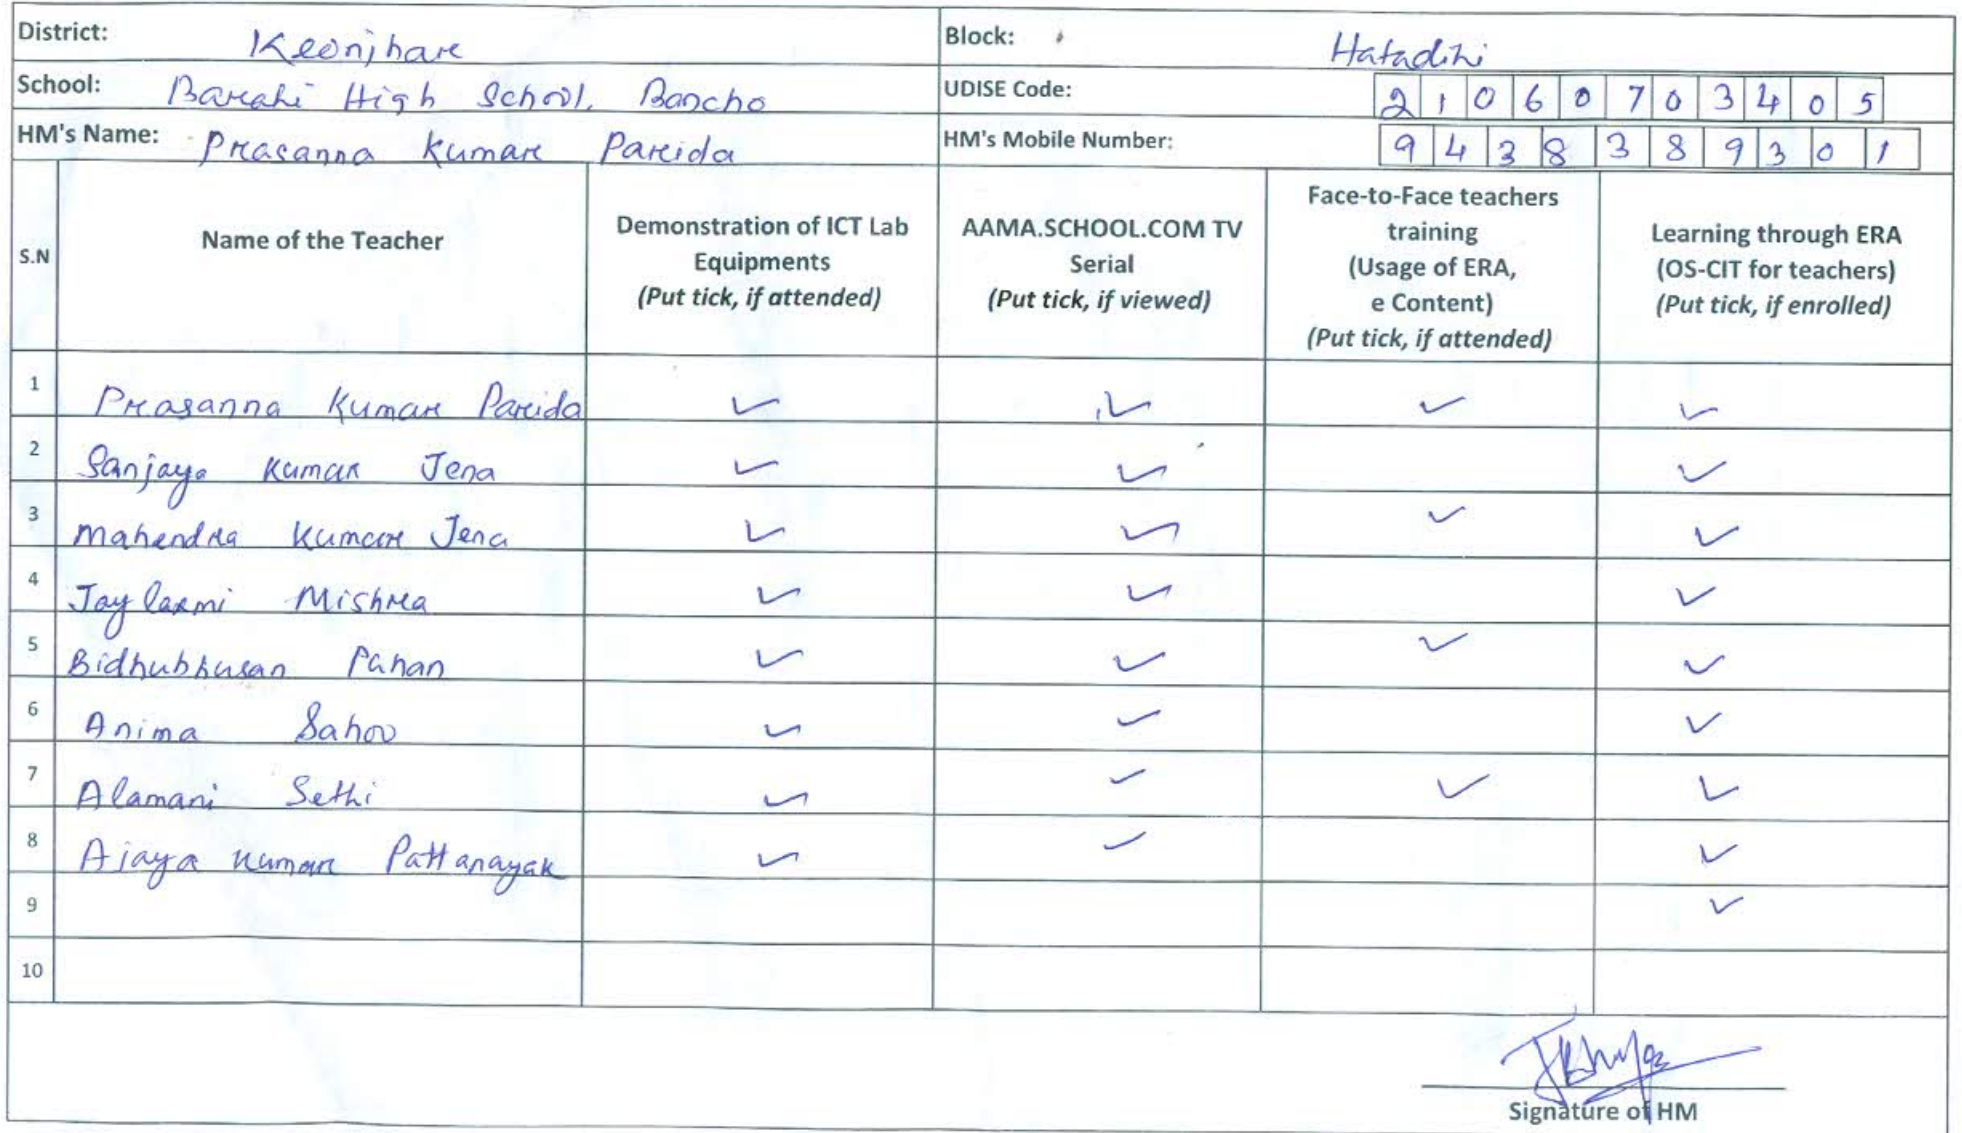 District: Keonjhare
Block: Hatadihi
School: Barahi High School, Bancho
UDISE Code: 2 1 0 6 0 7 0 3 4 0 5
HM's Name: Prasanna Kumare Pareida
HM's Mobile Number: 9 4 3 8 3 8 9 3 0 1
S.N
Name of the Teacher
Demonstration of ICT Lab
Equipments
(Put tick, if attended)
AAMA.SCHOOL.COM TV
Serial
(Put tick, if viewed)
Face-to-Face teachers
training
(Usage of ERA,
e Content)
(Put tick, if attended)
Learning through ERA
(OS-CIT for teachers)
(Put tick, if enrolled)
1 Prasanna Kumar Pareida ✓ ✓ ✓ ✓
2 Sanjaya Kumar Jena ✓ ✓ ✓
3 Mahendra Kumar Jena ✓ ✓ ✓ ✓
4 Jaylaxmi Mishra ✓ ✓ ✓
5 Bidhubhusan Pahan ✓ ✓ ✓ ✓
6 Anima Sahoo ✓ ✓ ✓
7 Alamani Sethi ✓ ✓ ✓ ✓
8 Ajaya Kumar Pattanayak ✓ ✓ ✓
9 ✓
10
Signature of HM